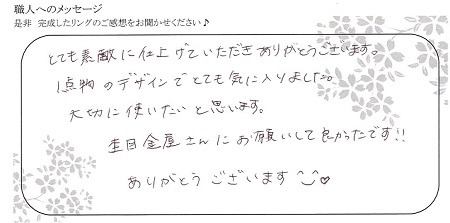 職人へのメッセージ
是非 完成したリングのご感想をお聞かせください♪
とても素敵に仕上げていただきありがとうございます。
1点物のデザインでとても気に入りました。
大切に使いたいと思います。
杢目金屋さんにお願いして良かったです!!
ありがとうございます ^‿^♡